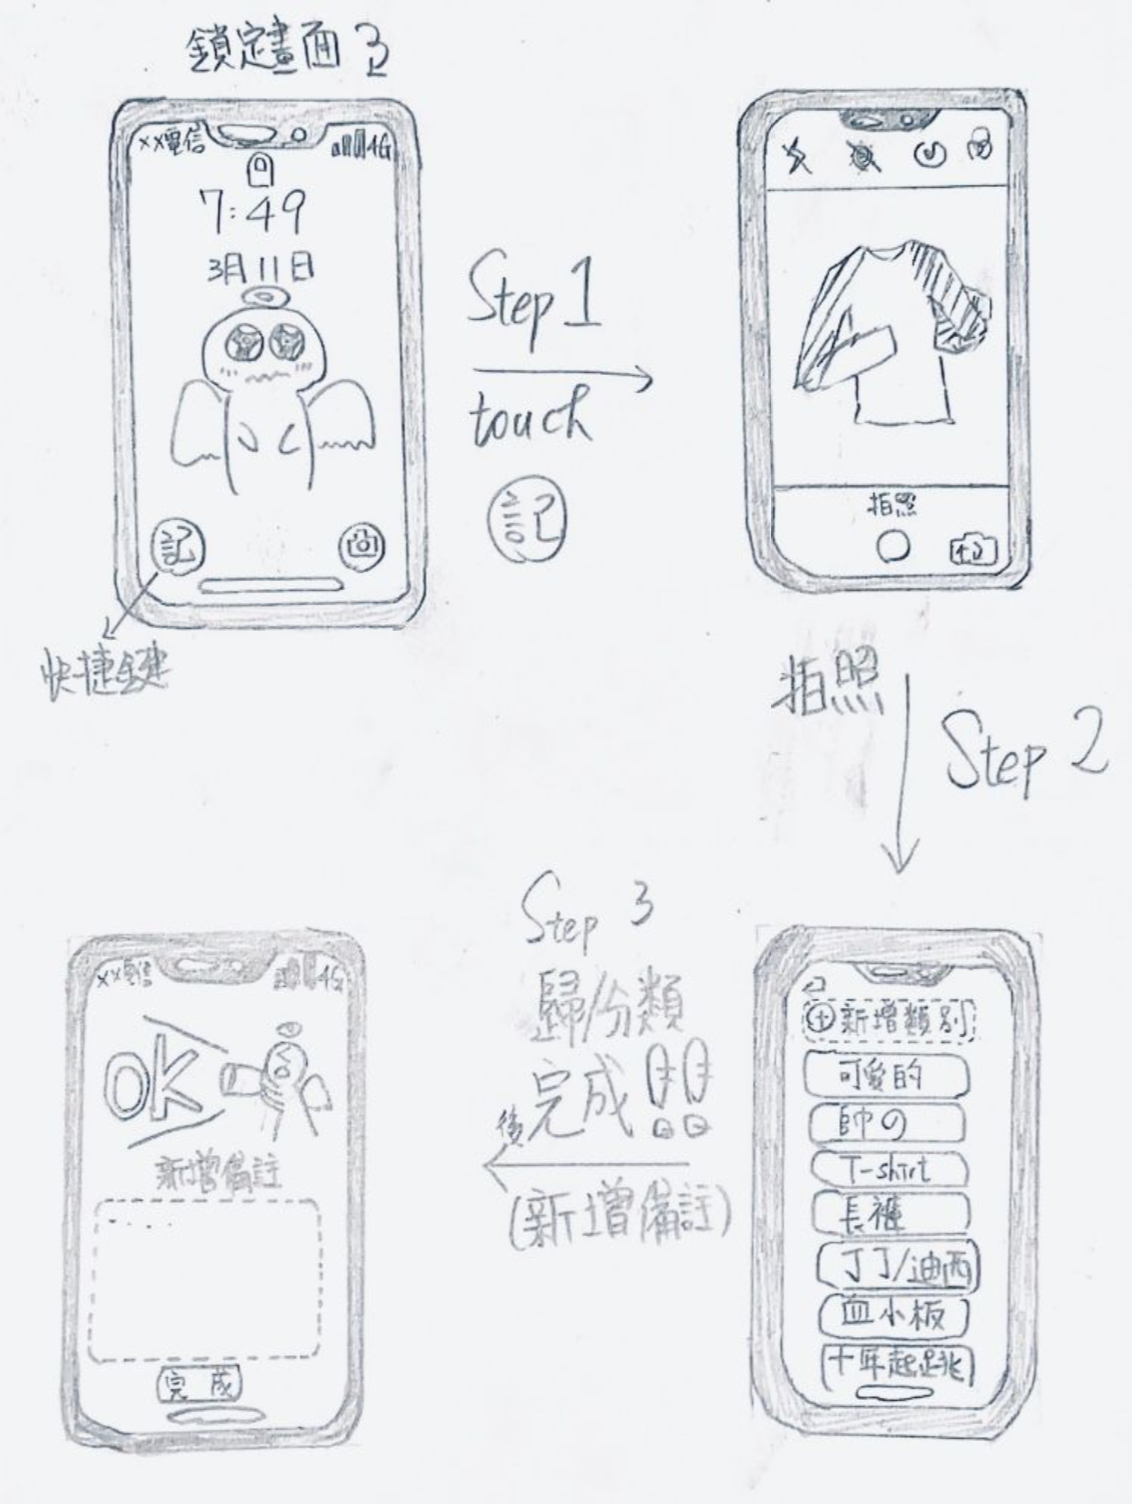 鎖定畫面
××電信
4G
7:49
3月11日
記
快捷鍵
Step 1
touch
記
拍照
拍照
Step 2
新增類別
可愛的
帥の
T-shirt
長褲
丁丁/迪西
血小板
十年起跳
Step 3
歸分類
完成!!
後
(新增備註)
××電信
4G
OK
新增備註
....
完成